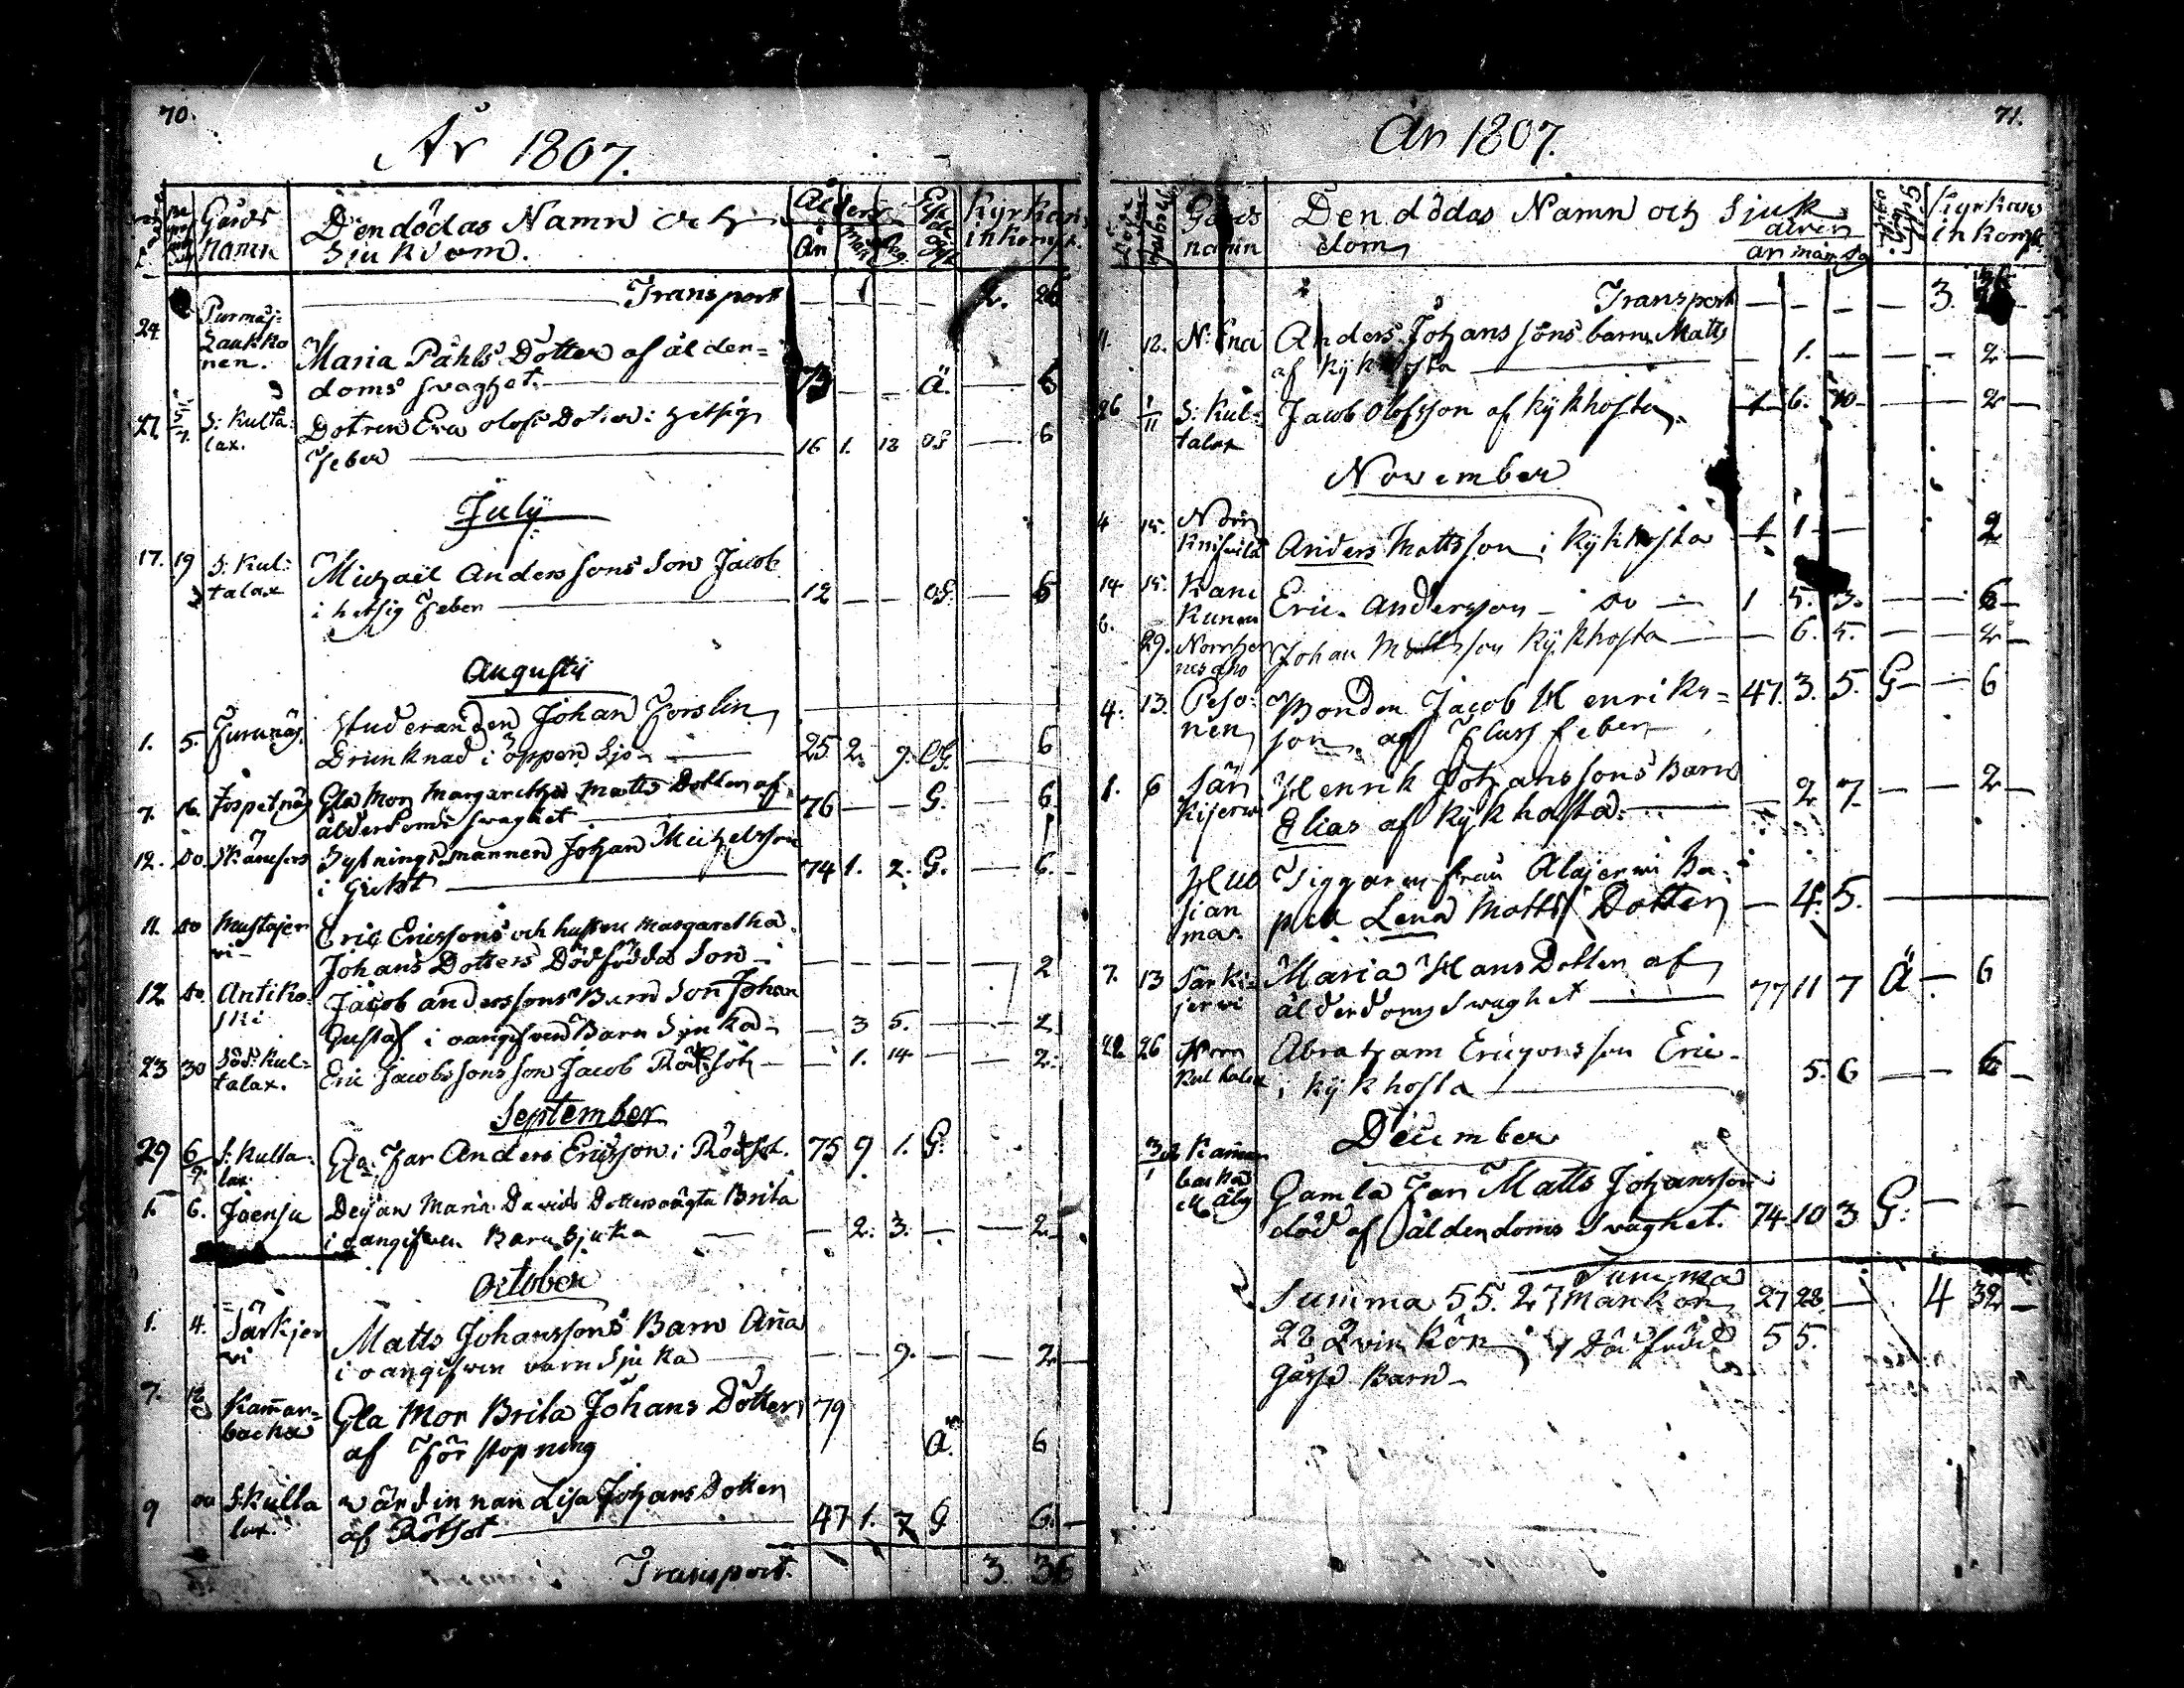 70.
År 1807.
Gårds namn
Den dödas Namn och Sjukdom.
Ålder
År
Kyrkans inkomst.
Transport 2. 26
24 Purmoj: Laukkonen.
Maria Påhls Dotter af ålder=
doms svaghet. 73 — — Ä. — 6
27 S: Kulta:lax.
Dotren Eva Olofs Dotter: hetsig
feber 16 1. 12 OG — 6
July
17. 19 S: Kul:talax
Michaël Anderssons Son Jacob
i hetsig feber 12 — — OG. — 6
Augusti
1. 5. Furunäs.
Studeranden Johan Forslin
Drunknad i öppen Sjö 25 2. 9. OG. 6
7. 16. Tospotnäs
Gla Mor Margaretha Matts Dotter af
ålderdoms svaghet 76 — — G. — 6
12. do. Skånsors
Sytningsmannen Johan Michelsson
i Gickt 74 1. 2. G. — 6.
11. do Mustajervi
Eric Ericssons och hustru Margaretha
Johans Dotters Dödfödda Son — — — — — 2
12 do. Antikoski
Jacob Anderssons Barn Son Johan
Gustaf i oangifven Barn Sjukdo — 3 5. — — 2
23 30 Söd: Kul=talax.
Eric Jacobssons son Jacob Rödsot — 1. 14 — — 2.
September
29 6/9. S: Kulta:lax
Gla: Far Anders Ericsson i Rödsot. 75 9 1. G.
1. 6. Joensu
Dejan Maria Davids Dotters oägta Brita
i oangifven Barnsjuka — 2. 3. — — 2.
October
1. 4. Särkjervi
Matts Johanssons Barn Aña
i oangifven barnsjuka — — 9. — — 2
7. 12 Kam̄ar=backa
Gla Mor Brita Johans Dotter 79
af Förstopning Ä. 6
9 do S: Kultalax.
Wärdinnan Lisa Johans Dotter
af Rötsot 47 1. 7 G 6. —
Transport. 3. 36
71.
År 1807.
Gårds namn
Den dödas Namn och Sjukdom
ålder
år mån dg
Kyrkans inkomst.
Transport — — — — 3.
11. 12. N: Ena
Anders Johanssons barn Matts
af Kykhosta — 1. — — — 2 —
26 1/11 S: Kul:talax
Jacob Olofsson af Kykhosta. 1 6. 10 — — 2 —
November
4 15.
Anders Mattsson i Kykhosta 1 1 — 2
14 15. Kanikunen
Eric Andersson — do — 1 5. 3. — — 6 —
6. 29.
Johan Mattsson Kykhosta — 6. 5. — — 2 —
4. 13. Peso:nen
Bonden Jacob Henriks=
son af Fluss feber 47. 3. 5. G — — 6
1. 6 Särkijerwi
Henrik Johanssons Barn
Elias af Kykhosta — 2 7 — — 2 —
Huosianmas.
Tiggaren från Alajerwi Ka
pua Lena Matts Dotter — 4. 5.
7. 13 Särkijerwi
Maria Hans Dotter af
ålderdoms Swaghet 77 11 7 Ä — 6
22 26 Norr Kultalax
Abraham Ericsons son Eric
i Kykhosta 5. 6 — — 6 —
December
Kam̄arbacka M: Älg
Gamla Far Matts Johansson
död af ålderdoms Svaghet. 74 10 3 G. —
Summa
Summa 55. 27 Mankön 27 28. — 4 32 —
28 Qvinkön 1 Dödfödd 55.
Gosse Barn —